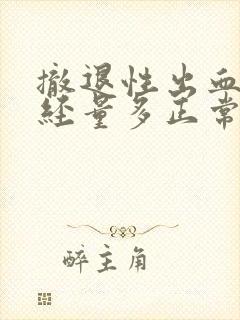 撤退性出血
经量多正常
醉主角